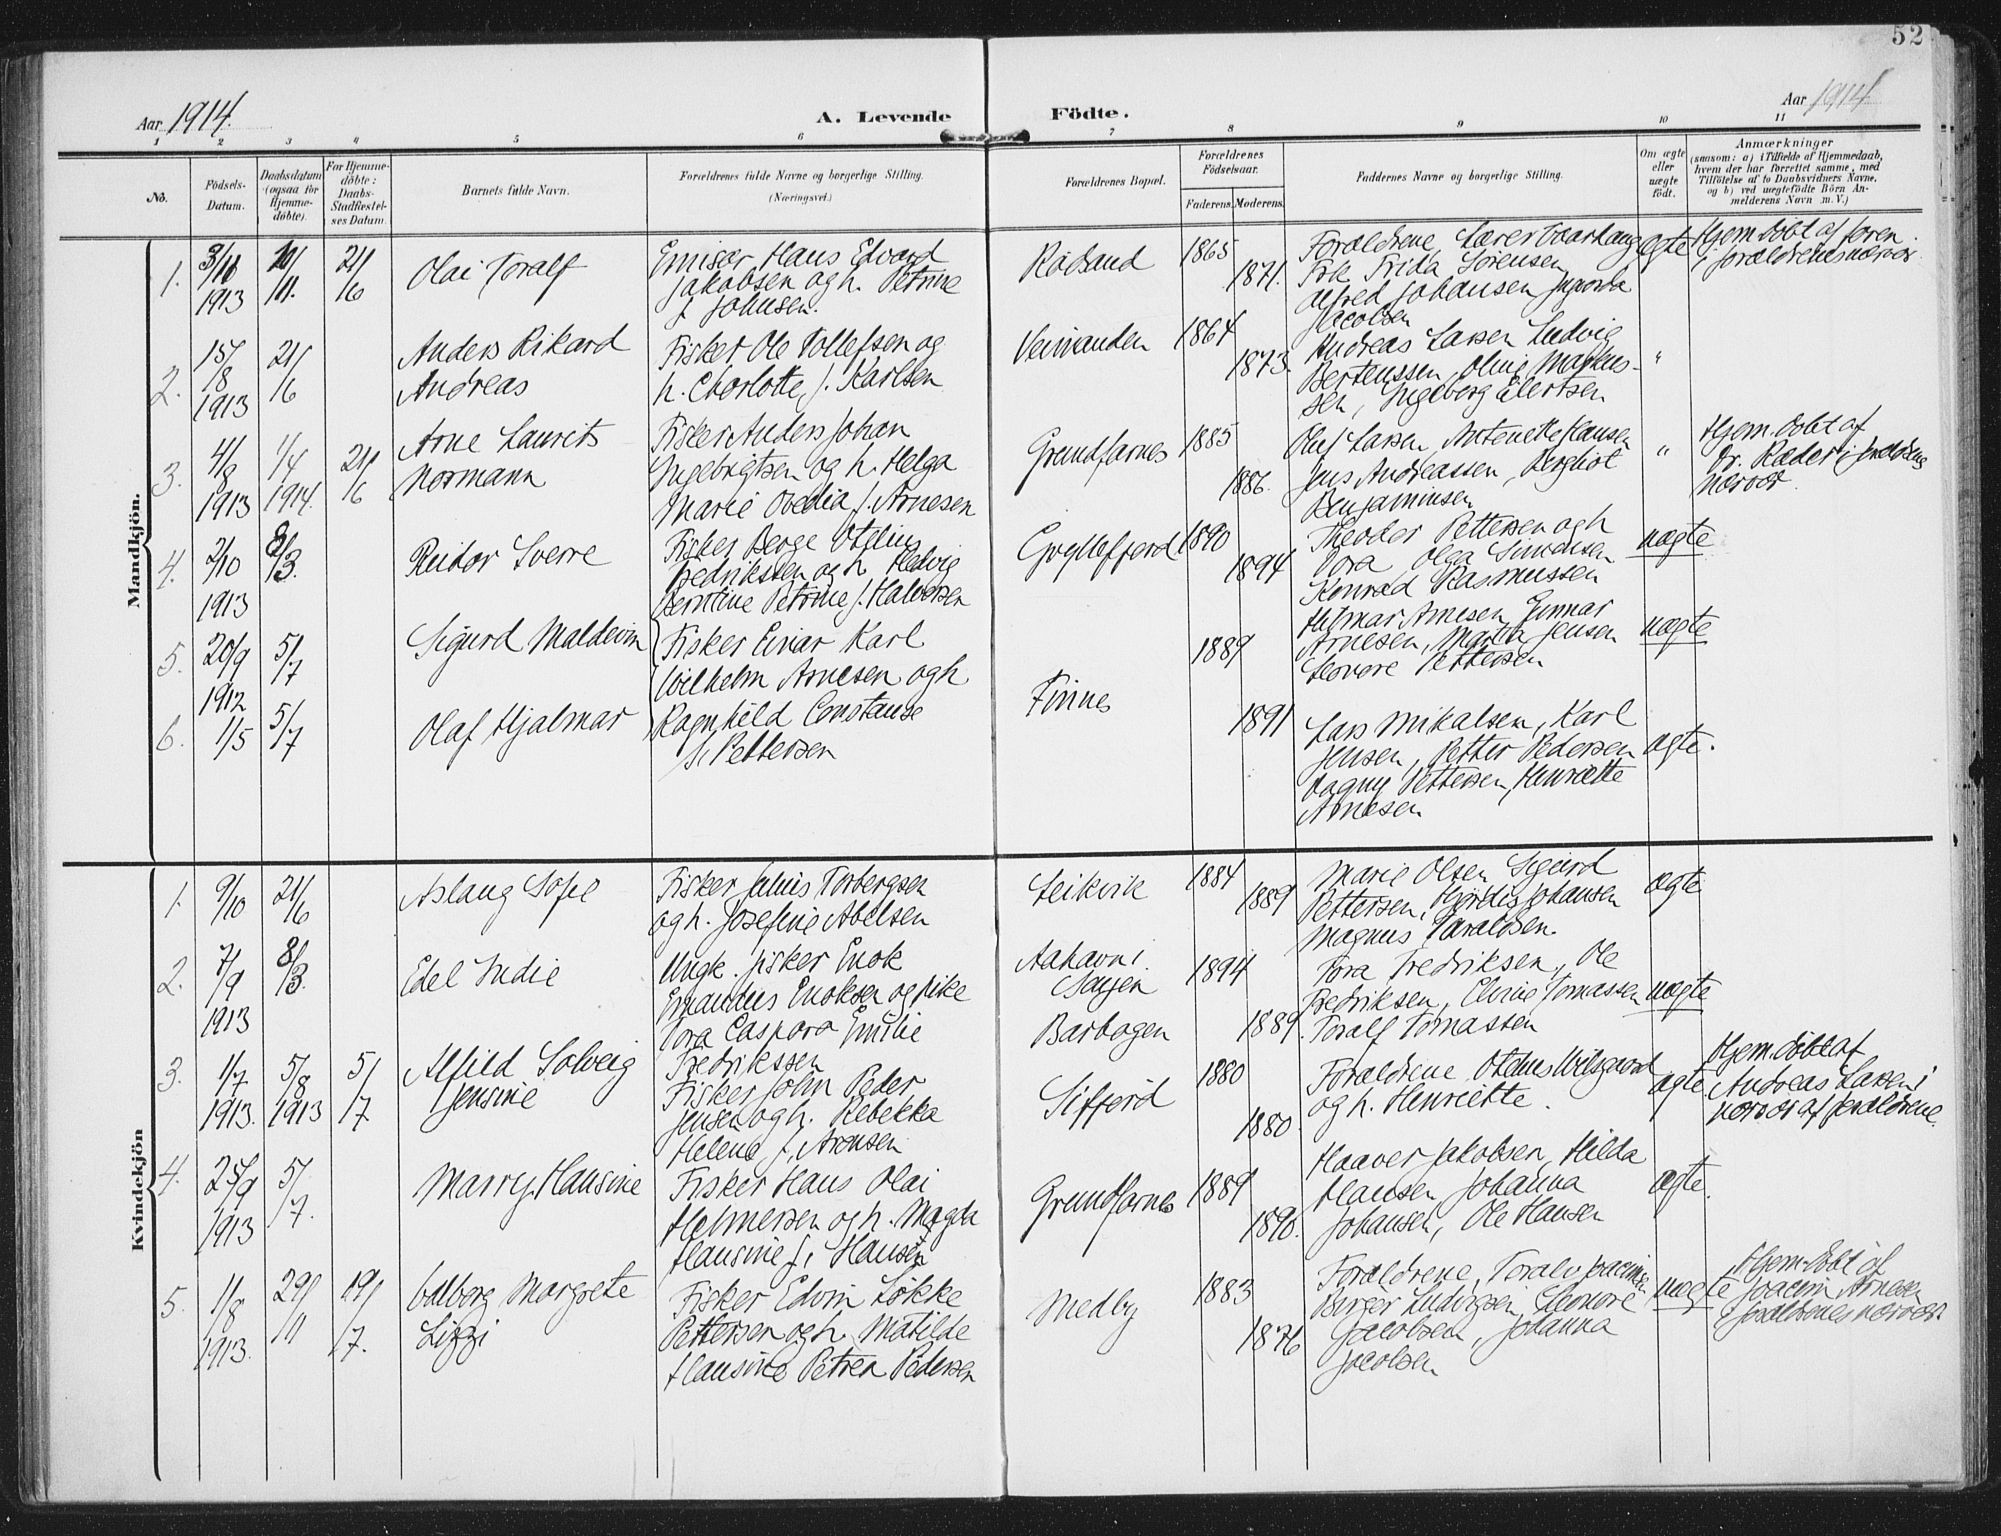 52
Aar 1914.
A. Levende
Födte.
Aar 1914
1 2 3 4 5 6 7 8 9 10 11
No.
Födsels-
Datum.
Daabsdatum
(ogsaa for
Hjemme-
döbte).
For Hjemme-
döbte:
Daabs-
Stadfæstel-
ses Datum.
Barnets fulde Navn.
Forældrenes fulde Navne og borgerlige Stilling.
(Næringsvei.)
Forældrenes Bopæl.
Forældrenes
Födselsaar.
Faderens. Moderens.
Faddernes Navne og borgerlige Stilling.
Om ægte
eller
uægte
födt.
Anmærkninger
(saasom: a) i Tilfælde af Hjemmedaab,
hvem der har forrettet samme, med
Tilföielse af to Daabsvidners Navne,
og b) ved uægtefödte Börn An-
melderens Navn m. V.)
Mandkjön.
1.
3/10
1913
11.
21/6
Olai Toralf
Emisær Hans Edvard
Jakobsen og h. Petrine
f. Johnsen.
Rödsand
1865
1871.
Forældrene, Lærer
Frk Frida Sörensen
Alfred Johansen
Jacobsen
ægte
Hjem.döbt af
i forældrenes nærvær
2.
15/8
1913
21/6
Anders Rikard
Andreas
Fisker Ole Tollefsen og
h. Charlotte, f. Karlsen
1864
1873.
Andreas Larsen Ludvig
Berteussen, Oline Markus-
sen, Ingeberg Eilertsen
"
3.
4/8
1913
1/4
1914.
21/6
Arne Laurits
Normann
Fisker Anders Johan
Ingebrigtsen og h. Helga
Marie Ovedia f. Arnesen
Grundfarnes
1885
1886.
Oluf Larsen, Antonette Hansen
Jens Andreassen, Bergliot
Benjaminsen
"
Hjem.döbt af
Dr. Ræder i forældrenes
nærvær.
4.
2/10
1913
8/3.
Reidar Sverre
Fisker Berge Otelius
Fredrikssen og h. Hedvig
Berntine Petrine f. Halvorsen
Gryllefjord
1890
1894
Theodor Pettersen og h
Tora Olga Simonsen
Konrad Rasmussen
uægte
5.
20/9
1912
5/7
Sigurd Maldevin
Fisker Einar Karl
Wilhelm Arnesen og h
1889
Hilmar Arnesen, Gunnar
Arnesen, Marta Jensen
Pettersen
uægte
6.
1/5
5/7
Olaf Hjalmar
Ragnhild Constanse
f. Pettersen
Finnes
1891
Lars Mikalsen, Karl
Jensen, Petter Pedersen
Dagny Pettersen, Henriette
Arnesen
ægte.
Kvindekjön
1.
9/10
21/6
Aslaug Sofie
Fisker Julius Torbergsen
og h. Josefine Abelsen
Leikvik
1884
1889
Marie Olsen Sigurd
Pettersen, Hjördis Johansen
Magnus Taraldsen.
ægte
2.
7/9
1913
8/3.
Edel Indie
Ungk. fisker Enok
Emandus Enoksen og pike
Tora Caspara Emilie
Fredrikssen
Aahavn i
Barbogen
1894
1889.
Tora Fredriksen, Ole
Fredriksen, Tomassen
Toralf Tomassen
uægte
3.
1/7
1913.
5/8
1913
5/
/7
Alfild Solveig
Jensine
Fisker John Peder
Jensen og h. Rebekka
Helene f. Arensen
Sifjord
1880
1880.
Forældrene
og h. Henriette.
ægte.
Hjem.döbt af
Andreas Larsen i
nærvær af forældrene.
4.
25/9
1913
5/
/7.
Marry Hansine
Fisker Hans Olai
Helmersen og h. Magda
Hansine f. Hansen
Grundfarnes
1889
1890.
Haaver Jakobsen, Hilda
Hansen Johanna
Johansen, Ole Hansen
ægte.
5.
1/8
1913.
29/
/11
19/
/7.
Valborg Margrete
Lizzi
Fisker Edvin Lökke
Pettersen og h. Matilde
Hansine Petrea Pedersen
Medby
1883
1876
Forældrene, Toralv
Birger Ludvigsen, Eleonore
Jacobsen, Johanna
Jacobsen
uægte
Hjem.döbt af
Joacim Arnesen
i forældrenes nærvær.